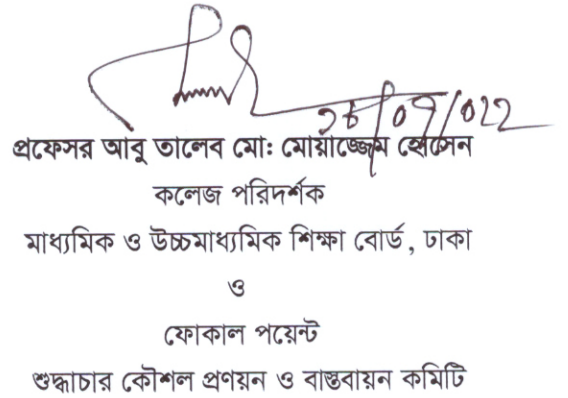 প্রফেসর আবু তালেব মো: মোয়াজ্জেম হোসেন
কলেজ পরিদর্শক
মাধ্যমিক ও উচ্চমাধ্যমিক শিক্ষা বোর্ড, ঢাকা
ও
ফোকাল পয়েন্ট
শুদ্ধাচার কৌশল প্রণয়ন ও বাস্তবায়ন কমিটি